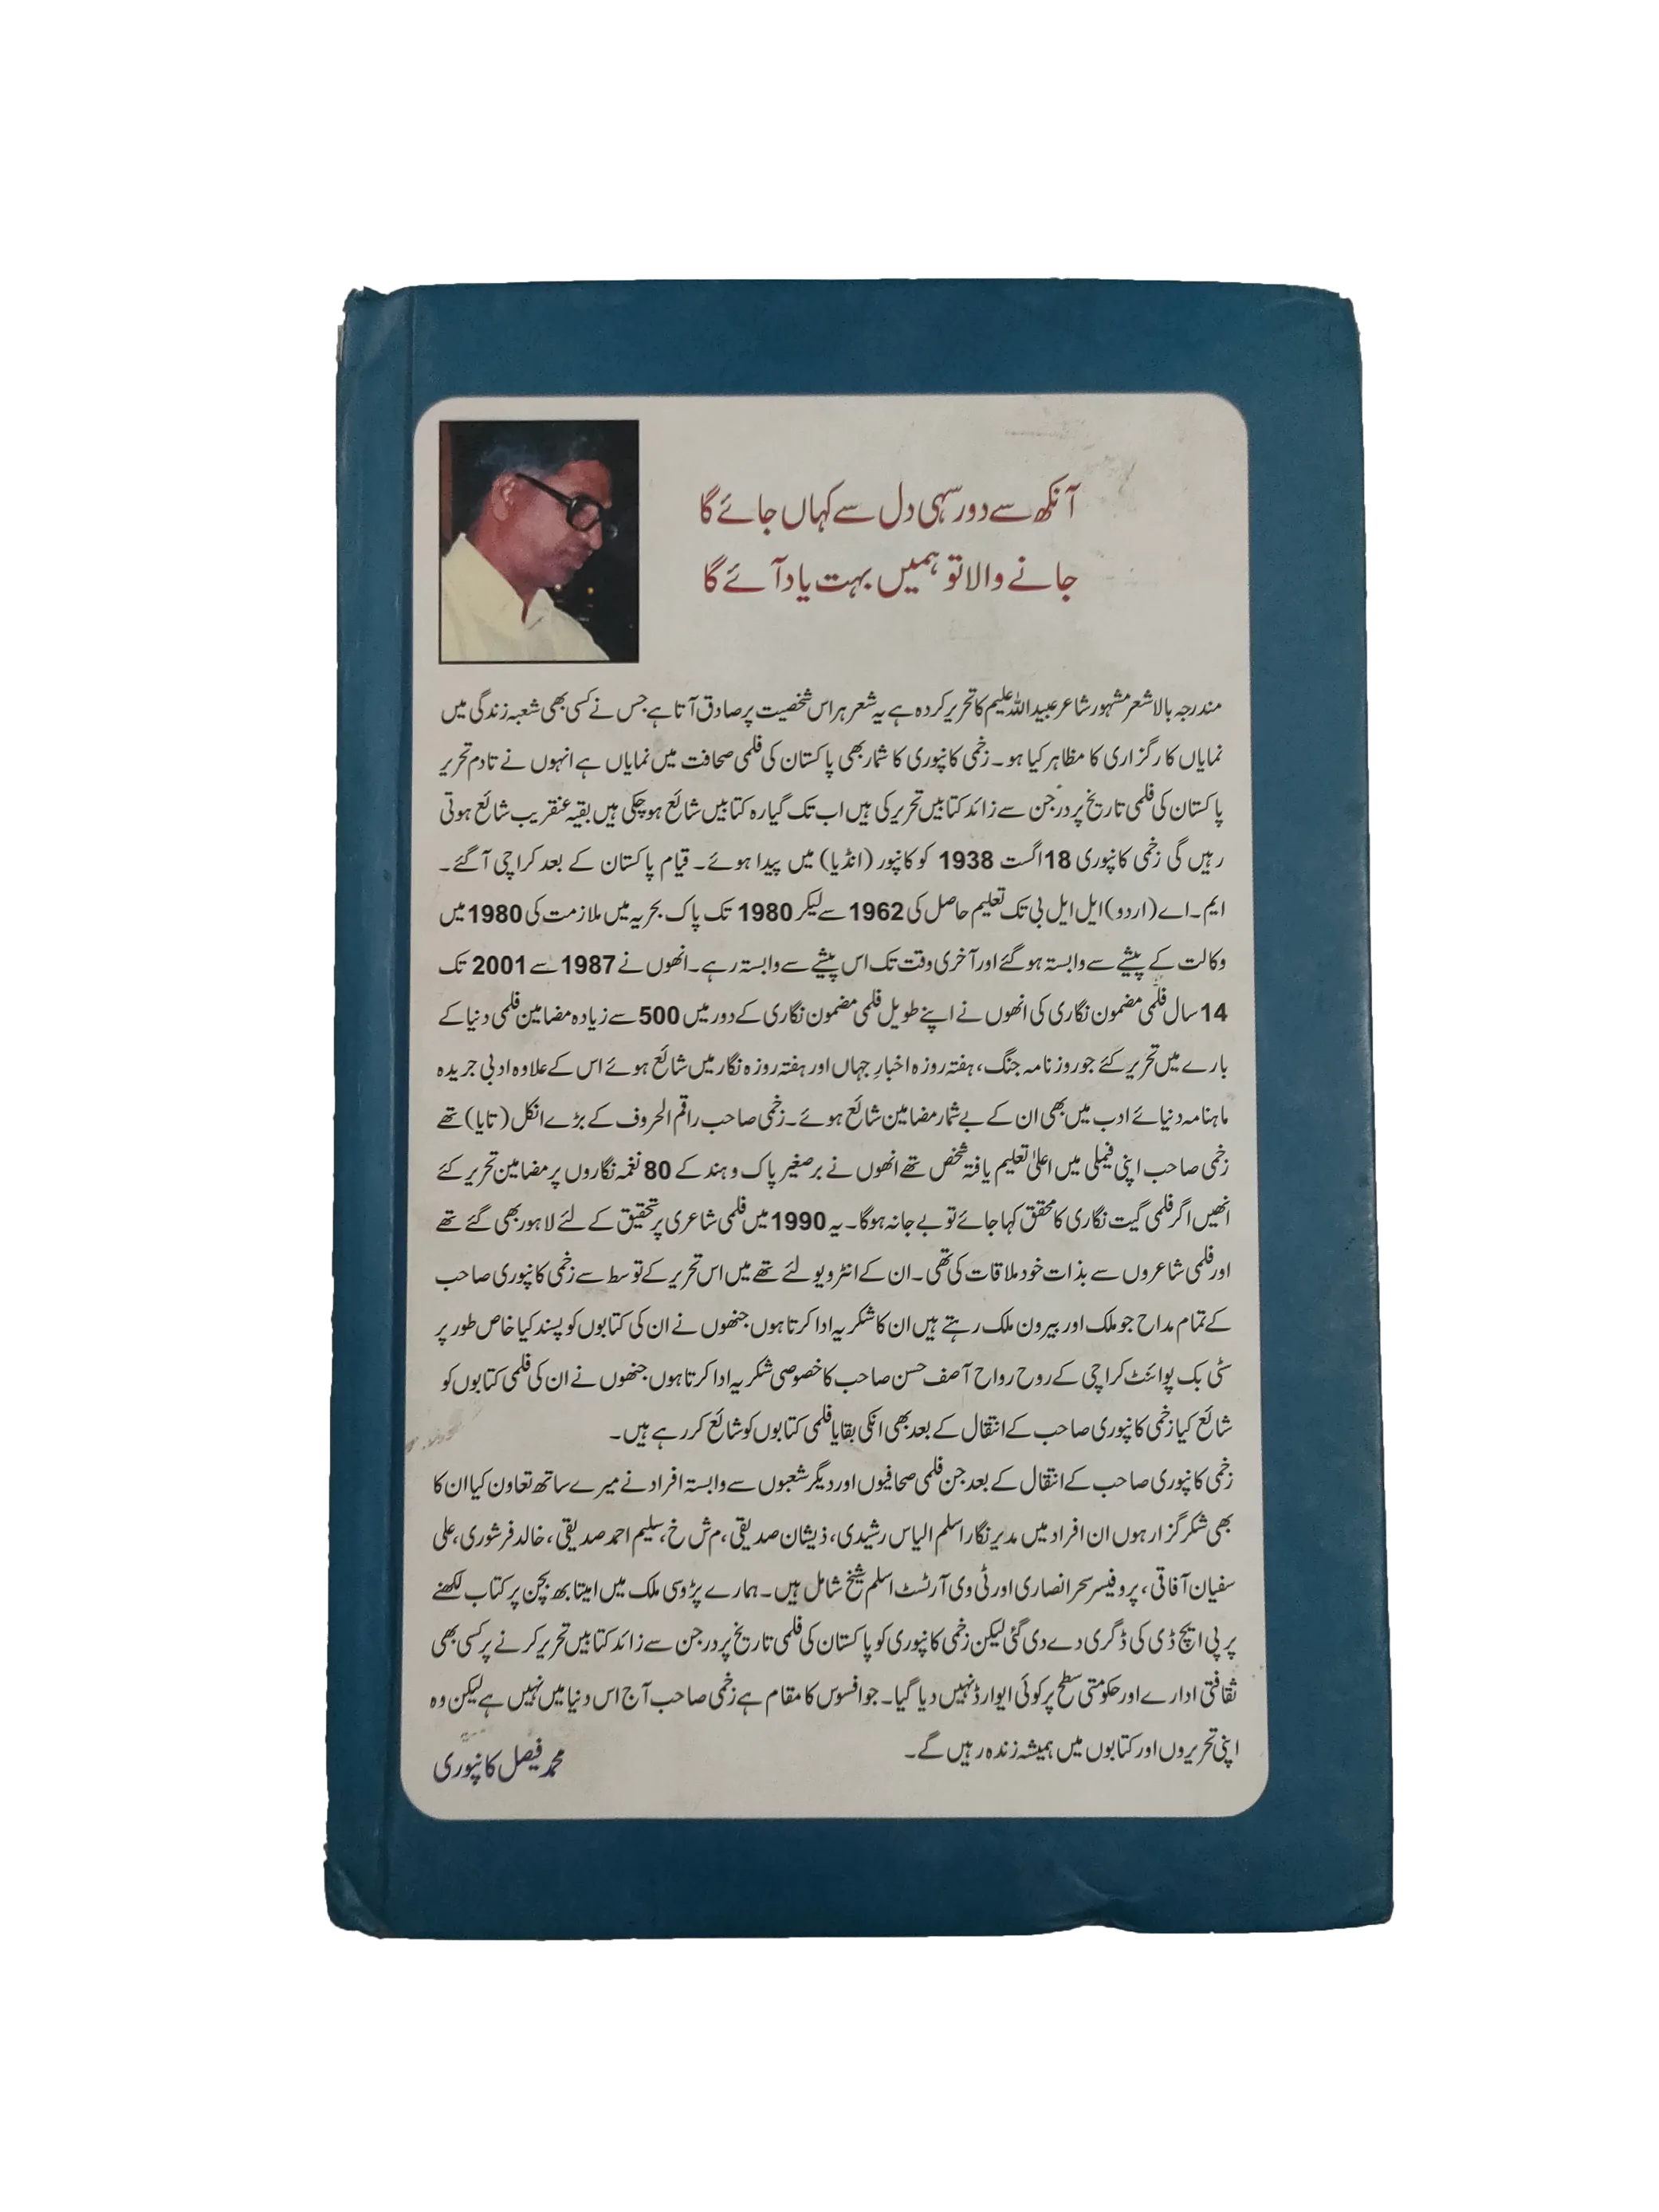 آنکھ سے دور سہی دل سے کہاں جائے گا
جانے والا تو ہمیں بہت یاد آئے گا
مندرجہ بالا شعر مشہور شاعر عبید اللہ علیم کا تحریر کردہ ہے یہ شعر ہر اس شخصیت پر صادق آتا ہے جس نے کسی بھی شعبہ زندگی میں
نمایاں کارگزاری کا مظاہر کیا ہو۔ زخمی کانپوری کا شمار بھی پاکستان کی فلمی صحافت میں نمایاں ہے انہوں نے تادم تحریر
پاکستان کی فلمی تاریخ پر درجن سے زائد کتابیں تحریر کی ہیں اب تک گیارہ کتابیں شائع ہوچکی ہیں بقیہ عنقریب شائع ہوتی
رہیں گی زخمی کانپوری 18 اگست 1938 کو کانپور (انڈیا) میں پیدا ہوئے۔ قیام پاکستان کے بعد کراچی آگئے۔
ایم۔اے (اردو) ایل ایل بی تک تعلیم حاصل کی 1962 سے لیکر 1980 تک پاک بحریہ میں ملازمت کی 1980 میں
وکالت کے پیشے سے وابستہ ہوگئے اور آخری وقت تک اس پیشے سے وابستہ رہے۔ انھوں نے 1987 سے 2001 تک
14 سال فلمی مضمون نگاری کی انھوں نے اپنے طویل فلمی مضمون نگاری کے دور میں 500 سے زیادہ مضامین فلمی دنیا کے
بارے میں تحریر کئے جو روزنامہ جنگ، ہفتہ روزہ اخبارِ جہاں اور ہفتہ روزہ نگار میں شائع ہوئے اس کے علاوہ ادبی جریدہ
ماہنامہ دنیائے ادب میں بھی ان کے بے شمار مضامین شائع ہوئے۔ زخمی صاحب راقم الحروف کے بڑے انکل (تایا) تھے
زخمی صاحب اپنی فیملی میں اعلیٰ تعلیم یافتہ شخص تھے انھوں نے برصغیر پاک و ہند کے 80 نغمہ نگاروں پر مضامین تحریر کئے
انھیں اگر فلمی گیت نگاری کا محقق کہا جائے تو بے جا نہ ہوگا۔ یہ 1990 میں فلمی شاعری پر تحقیق کے لئے لاہور بھی گئے تھے
اور فلمی شاعروں سے بذات خود ملاقات کی تھی۔ ان کے انٹرویو لئے تھے میں اس تحریر کے توسط سے زخمی کانپوری صاحب
کے تمام مداح جو ملک اور بیرون ملک رہتے ہیں ان کا شکریہ ادا کرتا ہوں جنھوں نے ان کی کتابوں کو پسند کیا خاص طور پر
سٹی بک پوائنٹ کراچی کے روح رواح آصف حسن صاحب کا خصوصی شکریہ ادا کرتا ہوں جنھوں نے ان کی فلمی کتابوں کو
شائع کیا زخمی کانپوری صاحب کے انتقال کے بعد بھی انکی بقایا فلمی کتابوں کو شائع کر رہے ہیں۔
زخمی کانپوری صاحب کے انتقال کے بعد جن فلمی صحافیوں اور دیگر شعبوں سے وابستہ افراد نے میرے ساتھ تعاون کیا ان کا
بھی شکر گزار ہوں ان افراد میں مدیر نگار اسلم الیاس رشیدی، ذیشان صدیقی، م ش خ، سلیم احمد صدیقی، خالد فرشوری، علی
سفیان آفاقی، پروفیسر سحر انصاری اور ٹی وی آرٹسٹ اسلم شیخ شامل ہیں۔ ہمارے پڑوسی ملک میں امیتابھ بچن پر کتاب لکھنے
پر پی ایچ ڈی کی ڈگری دے دی گئی لیکن زخمی کانپوری کو پاکستان کی فلمی تاریخ پر درجن سے زائد کتابیں تحریر کرنے پر کسی بھی
ثقافتی ادارے اور حکومتی سطح پر کوئی ایوارڈ نہیں دیا گیا۔ جو افسوس کا مقام ہے زخمی صاحب آج اس دنیا میں نہیں ہے لیکن وہ
اپنی تحریروں اور کتابوں میں ہمیشہ زندہ رہیں گے۔
محمد فیصل کانپوری